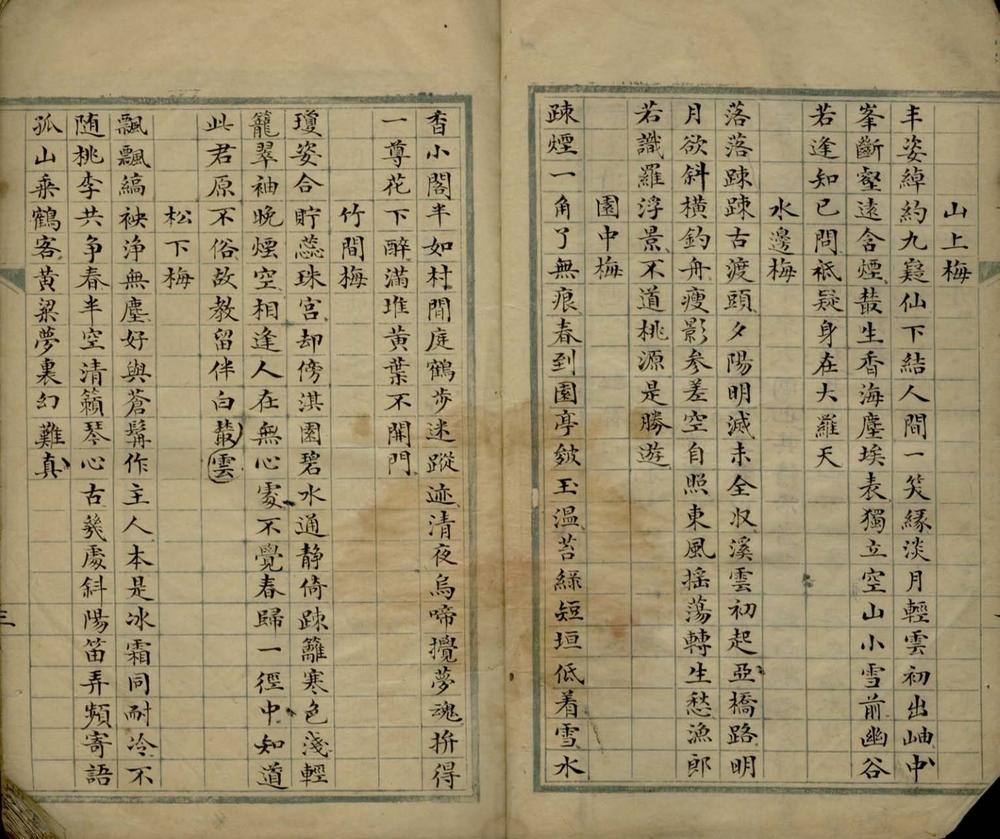 山上梅
丰姿綽約九嶷仙下結人間一笑緣淡月輕雲初出岫中
峯斷壑遠含煙叢生香海塵埃表獨立空山小雪前幽谷
若逢知已問衹疑身在大羅天
水邊梅
落落踈踈古渡頭夕陽明滅未全収溪雲初起亞橋路明
月欲斜橫釣舟瘦影參差空自照東風搖蕩轉生愁漁郎
若識羅浮景不道桃源是勝遊
園中梅
踈煙一角了無痕春到園亭皴玉溫苔綠短垣低着雪水
香小閣半如村間庭鶴步迷蹤迹清夜烏啼攪夢魂拚得
一尊花下醉滿堆黃葉不開門
竹間梅
瓊姿合貯蕊珠宮却傍淇園碧水通静倚踈籬寒色淺輕
籠翠袖晚煙空相逢人在無心處不覺春歸一徑中知道
此君原不俗故教留伴白叢雲
松下梅
飄飄縞袂浄無塵好與蒼髯作主人本是冰霜同耐冷不
随桃李共争春半空清籟琴心古幾處斜陽笛弄頻寄語
孤山乘鶴客黃粱夢裏幻難真
三